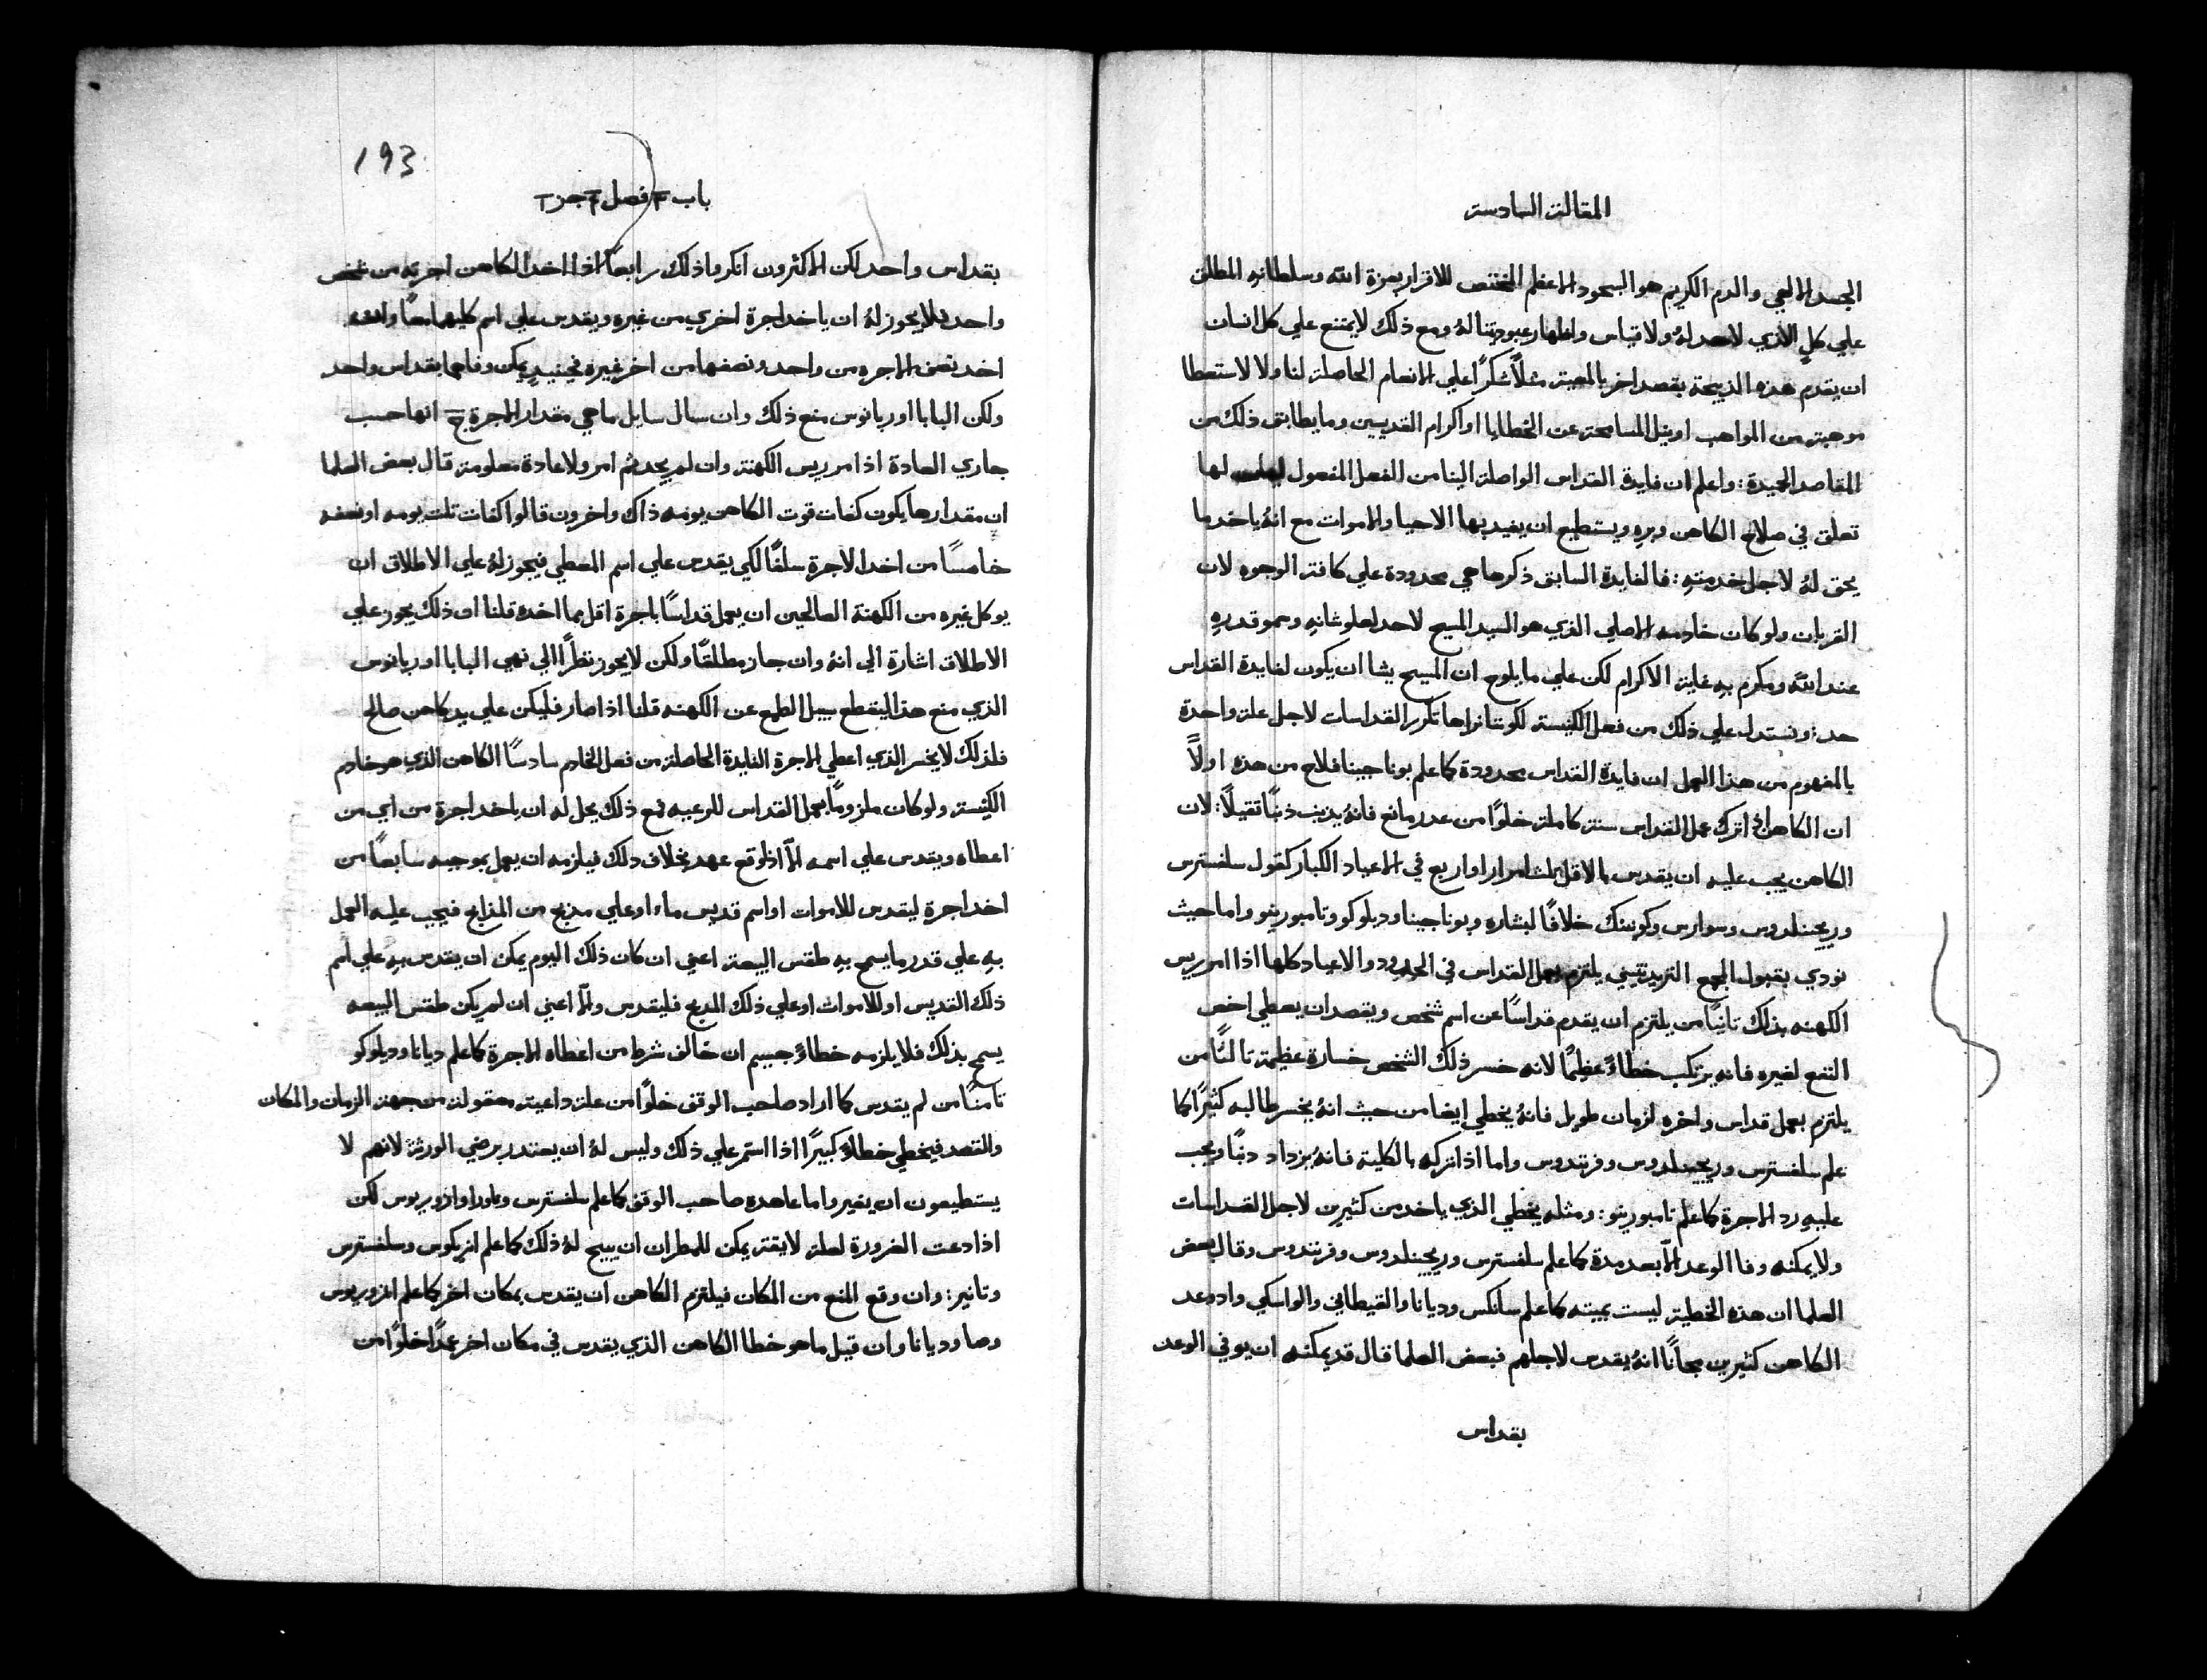 المقالة السادسة
الجسد الالهي والدم الكريم هو السجود الاعظم المختص للاقرار بعزة الله وسلطانه المطلق
علي كلٍ الذي لاحد له ولا قياس واظهار عبوديتنا لهُ ومع ذلك لا يمتنع علي كل انسان
ان يقدم هذه الذبيحة بقصد اخر بالمعية مثلاً شكراً علي الانعام الحاصلة لنا ولا لاستعطا
موهبة من المواهب او نيل المسامحة عن الخطايا او اكرام القديسين وما يطابق ذلك من
المقاصد الحميدة: واعلم ان فايدة القداس الواصلة الينا من الفعل المفعول لها
تعلق في صلاح الكاهن وبره ويستطيع ان يفيد بها الاحيا والاموات مع انهُ ياخد ما
يحق لهُ لاجل خدمته: فالفايدة السابق ذكرها هي محدودة علي كافة الوجوه لان
القربان ولو كان خادمه الاصلي الذي هو السيد المسيح لاحد لعلو شانهِ وسمو قدرهِ
عند الله ومكرم به غاية الاكرام لكن علي ما يلوح ان المسيح يشا ان يكون لفايدة القداس
حد: ونستدل علي ذلك من فعل الكنيسة لكوننا نراها تكرر القداسات لاجل علة واحدة
بالمفهوم من هذا العمل ان فايدة القداس محدودة كما علم بوناجينا فلاح من هذه اولاً
ان الكاهن اذ اترك عمل القداس سنة كاملة خلوًا من عدر مانع فانهُ يذنب ذنبًا تقيلاً: لان
الكاهن يجب عليه ان يقدس بالاقل تلث امرار او اربع في الاعياد الكبار كقول سلفسترس
وريجنلدوس وسوارس وكونينك خلافًا لبشاره وبوناجينا وديلوكو وتامبورينو واما حيث
نودي بقبول المجمع التريدنتيني يلتزم بعمل القداس في الحدود والاعياد كلها اذا امر ريس
الكهنه بذلك تانيًا من يلتزم ان يقدم قداسًا عن اسم شخص ويقصد ان يعطي اخص
النفع لغيره فانه يرتكب خطاءً عظيمًا لانه خسر ذلك الشخص خسارة عظيمة تالثًا من
يلتزم بعمل قداس واخره لزمان طويل فانهُ يخطي ايضا من حيث انهُ يخسر طالبه كثيرًا كما
علم سلفسترس وريجينلدوس وفرنندوس واما اذ اتركه بالكلية فانهُ يزداد دنبًا ويجب
عليهِ رد الاجرة كما علم تامبورينو: ومثله يخطي الذي ياخد من كثيرين لاجل القداسات
ولا يمكنه وفا الوعد الاّ بعد مدة كما علم سلفسترس وريجنلدوس وفرنندوس وقال بعض
العلما ان هذه الخطية ليست بميته كما علم سانكس وديانا والقيطاني والواسكي واد وعد
الكاهن كثيرين مجانًا انهُ يقدس لاجلهم فبعض العلما قال قد يمكنه ان يوفي الوعد
بقداس
193
باب فصل جز
بقداس واحد لكن الاكثرون انكروا ذلك رابعًا اذا اخد الكاهن اجرته من شخص
واحد فلا يجوز لهُ ان ياخد اجرة اخري من غيره ويقدس علي اسم كليهما معًا وانه
اخد نصف الاجره من واحد ونصفها من اخر غيره فحينيدٍ يمكن وفاهما بقداس واحد
ولكن البابا اوربانوس منع ذلك وان سال سايل ما هي مقدار الاجرة ج انها حسب
جاري العادة اذا امر ريس الكهنة وان لم يجد ثم امر ولا عادة معلومة قال بعض العلما
ان مقدارها يكون كفات قوت الكاهن يومه ذاك واخرون قالوا كفات تلت يومه او نصفه
خامسًا من اخد الاجرة سلفًا لكي يقدس علي اسم المعطي فيجوز لهُ علي الاطلاق ان
يوكل غيره من الكهنة الصالحين ان يعمل قداسًا باجرة اقل مما اخده قلنا ان ذلك يجوز علي
الاطلاق اشارة الي انهُ وان جاز مطلقًا ولكن لا يجوز نظرًا الي نهي البابا اوربانوس
الذي منع هذا ليقطع سبيل الطمع عن الكهنه قلنا اذا صار فليكن علي يد كاهن صالح
فلذلك لا يخسر الذي اعطي الاجرة الفايدة الحاصلة من فعل الخادم سادسًا الكاهن الذي هو خادم
الكنيسة ولو كان ملزومًا بعمل القداس للرعيه فمع ذلك يحل له ان ياخد اجرة من اي من
اعطاه ويقدس علي اسمه الاّ اذ لوقع عهد بخلاف دلك فيلزمه ان يعمل بموجبه سابعًا من
اخد اجرة ليقدس للاموات او اسم قديس ماء او علي مذبح من المذابح فيجب عليه العمل
بهِ علي قدر ما يسمح بهِ طقس البيعة اعني ان كان ذلك اليوم يمكن ان يقدس بهِ علي اسم
ذلك القديس او للاموات او علي ذلك المدبح فليقدس والاّ اعني ان لم يكن طقس البيعه
يسمح بذلك فلا يلزمه خطاءً جسيم ان خالف شرط من اعطاه الاجرة كما علم ديانا وديلوكو
تامنًا من لم يقدس كما اراد صاحب الوقف خلوًا من علة داعيته معقولة من جهة الزمان والمكان
والقصد فيخطي خطاءً كبيرًا اذا استمر علي ذلك وليس لهُ ان يعتدر برضي الورثة لانهم لا
يستطيعون ان يغيروا ما عاهده صاحب الوقف كما علم سلفسترس وناورا وازوريوس لكن
اذا دعت الضرورة لعلة لايقة يمكن للمطران ان يبيح لهُ ذلك كما علم انريكوس وسلفسترس
وتانير: وان وقع المنع من المكان فيلتزم الكاهن ان يقدس بمكان اخر كما علم ازوريوس
وصا وديانا وان قيل ما هو خطا الكاهن الذي يقدس في مكان اخر عمدًا خلوًا من